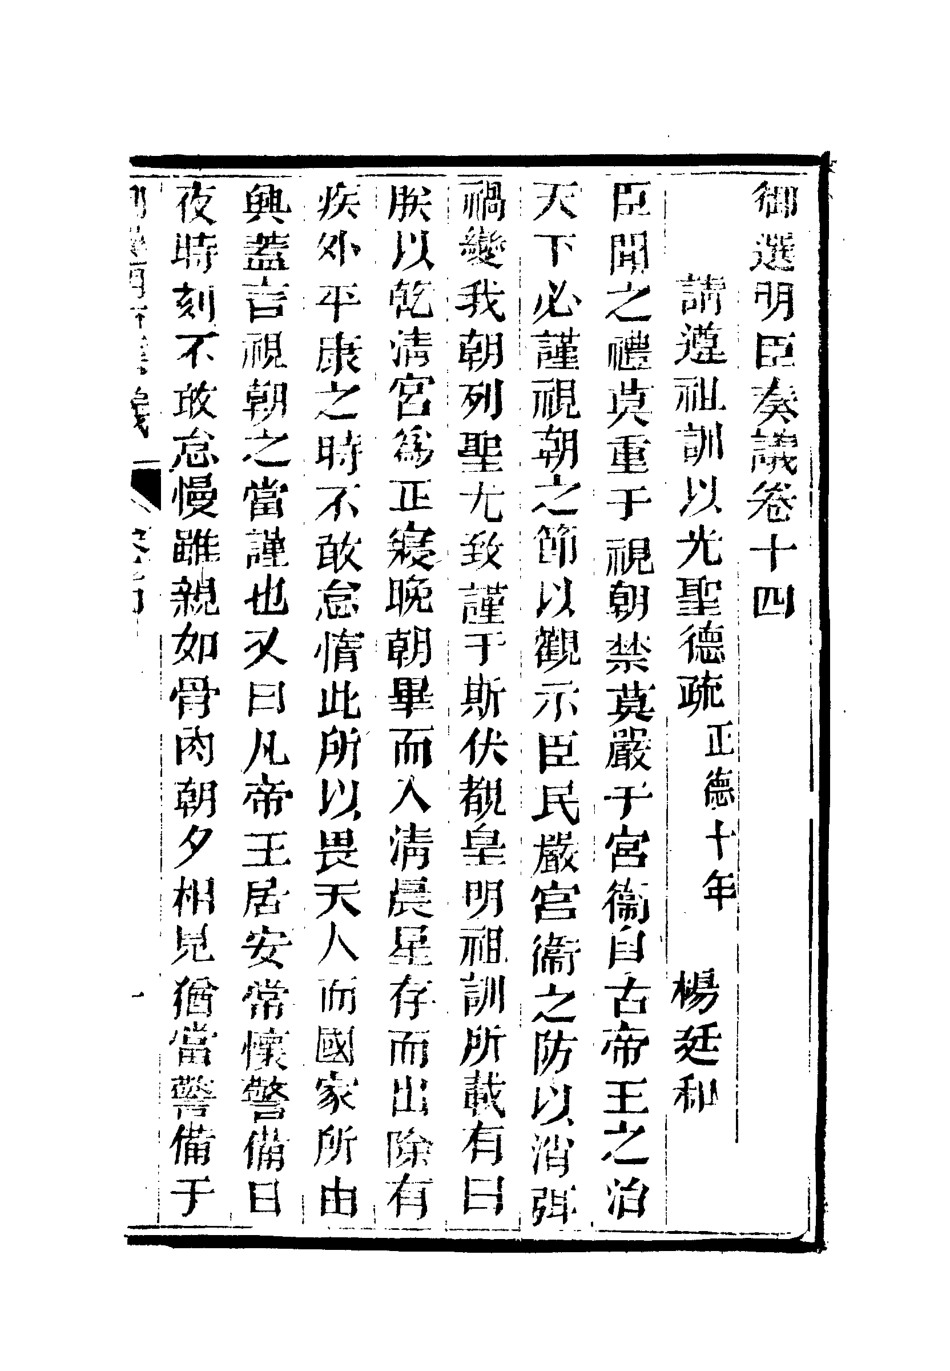 御選明臣奏議卷十四
請遵祖訓以光聖德疏 正德十年 楊廷和
臣聞之禮莫重于視朝禁莫嚴于宮衞自古帝王之治
天下必謹視朝之節以觀示臣民嚴宮衞之防以消弭
禍變我朝列聖尤致謹于斯伏覩皇明祖訓所載有曰
朕以乾清宮爲正寢晚朝畢而入清晨星存而出除有
疾外平康之時不敢怠惰此所以畏天人而國家所由
興蓋言視朝之當謹也又曰凡帝王居安常懷警備日
夜時刻不敢怠慢雖親如骨肉朝夕相見猶當警備于